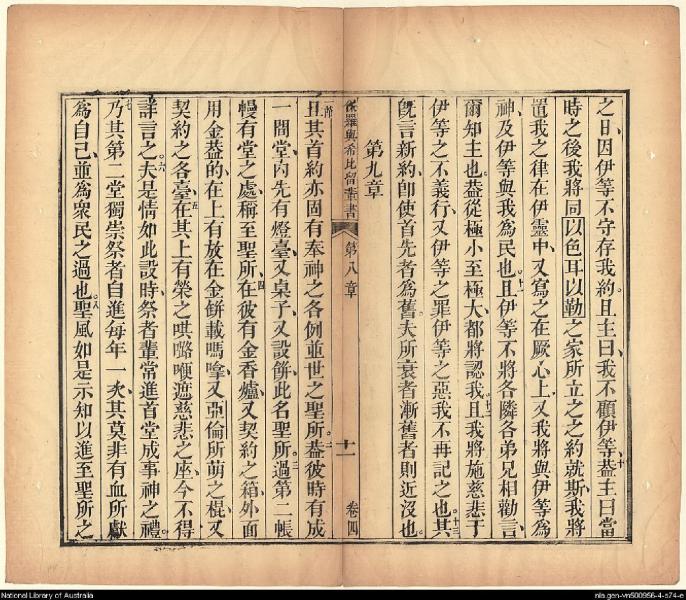 之日、因伊等不守存我約。且主曰、我不顧伊等、蓋主曰、當
時之後我將同以色耳以勒之家所立之之約就斯、我將
置我之律在伊靈中、又寫之在厥心上、又我將與伊等為
神、及伊等與我為民也。且伊等不將各隣各弟兄相勸言、
爾知主也。蓋從極小至極大、都將認我。且我將施慈悲于
伊等之不義行、又伊等之罪、伊等之惡我不再記之也。其
旣言新約、卽使首先者為舊、夫所衰者漸舊者則近沒也。
第九章
保羅與希比留輩書 第八章 十一 卷四
且其首約亦固有奉神之各例並世之聖所。蓋彼時有成
一間堂、內先有燈臺、又桌子、又設餅、此名聖所。過第二帳
幔有堂之處、稱至聖所、在彼有金香爐、又契約之箱、外面
用金蓋的、在上有放在金缾載嗎嗱、又亞倫所萌之棍、又
契約之各臺、在其上有榮之㖼㘔𠻥遮慈悲之座、今不得
詳言之。夫是情如此設時、祭者輩常進首堂成事神之禮。
乃其第二堂獨崇祭者自進每年一次、其莫非有血所獻
為自己、並為衆民之過也。聖風如是示知以進至聖所之
National Library of Australia
nla.gen-vn500956-4-s74-e